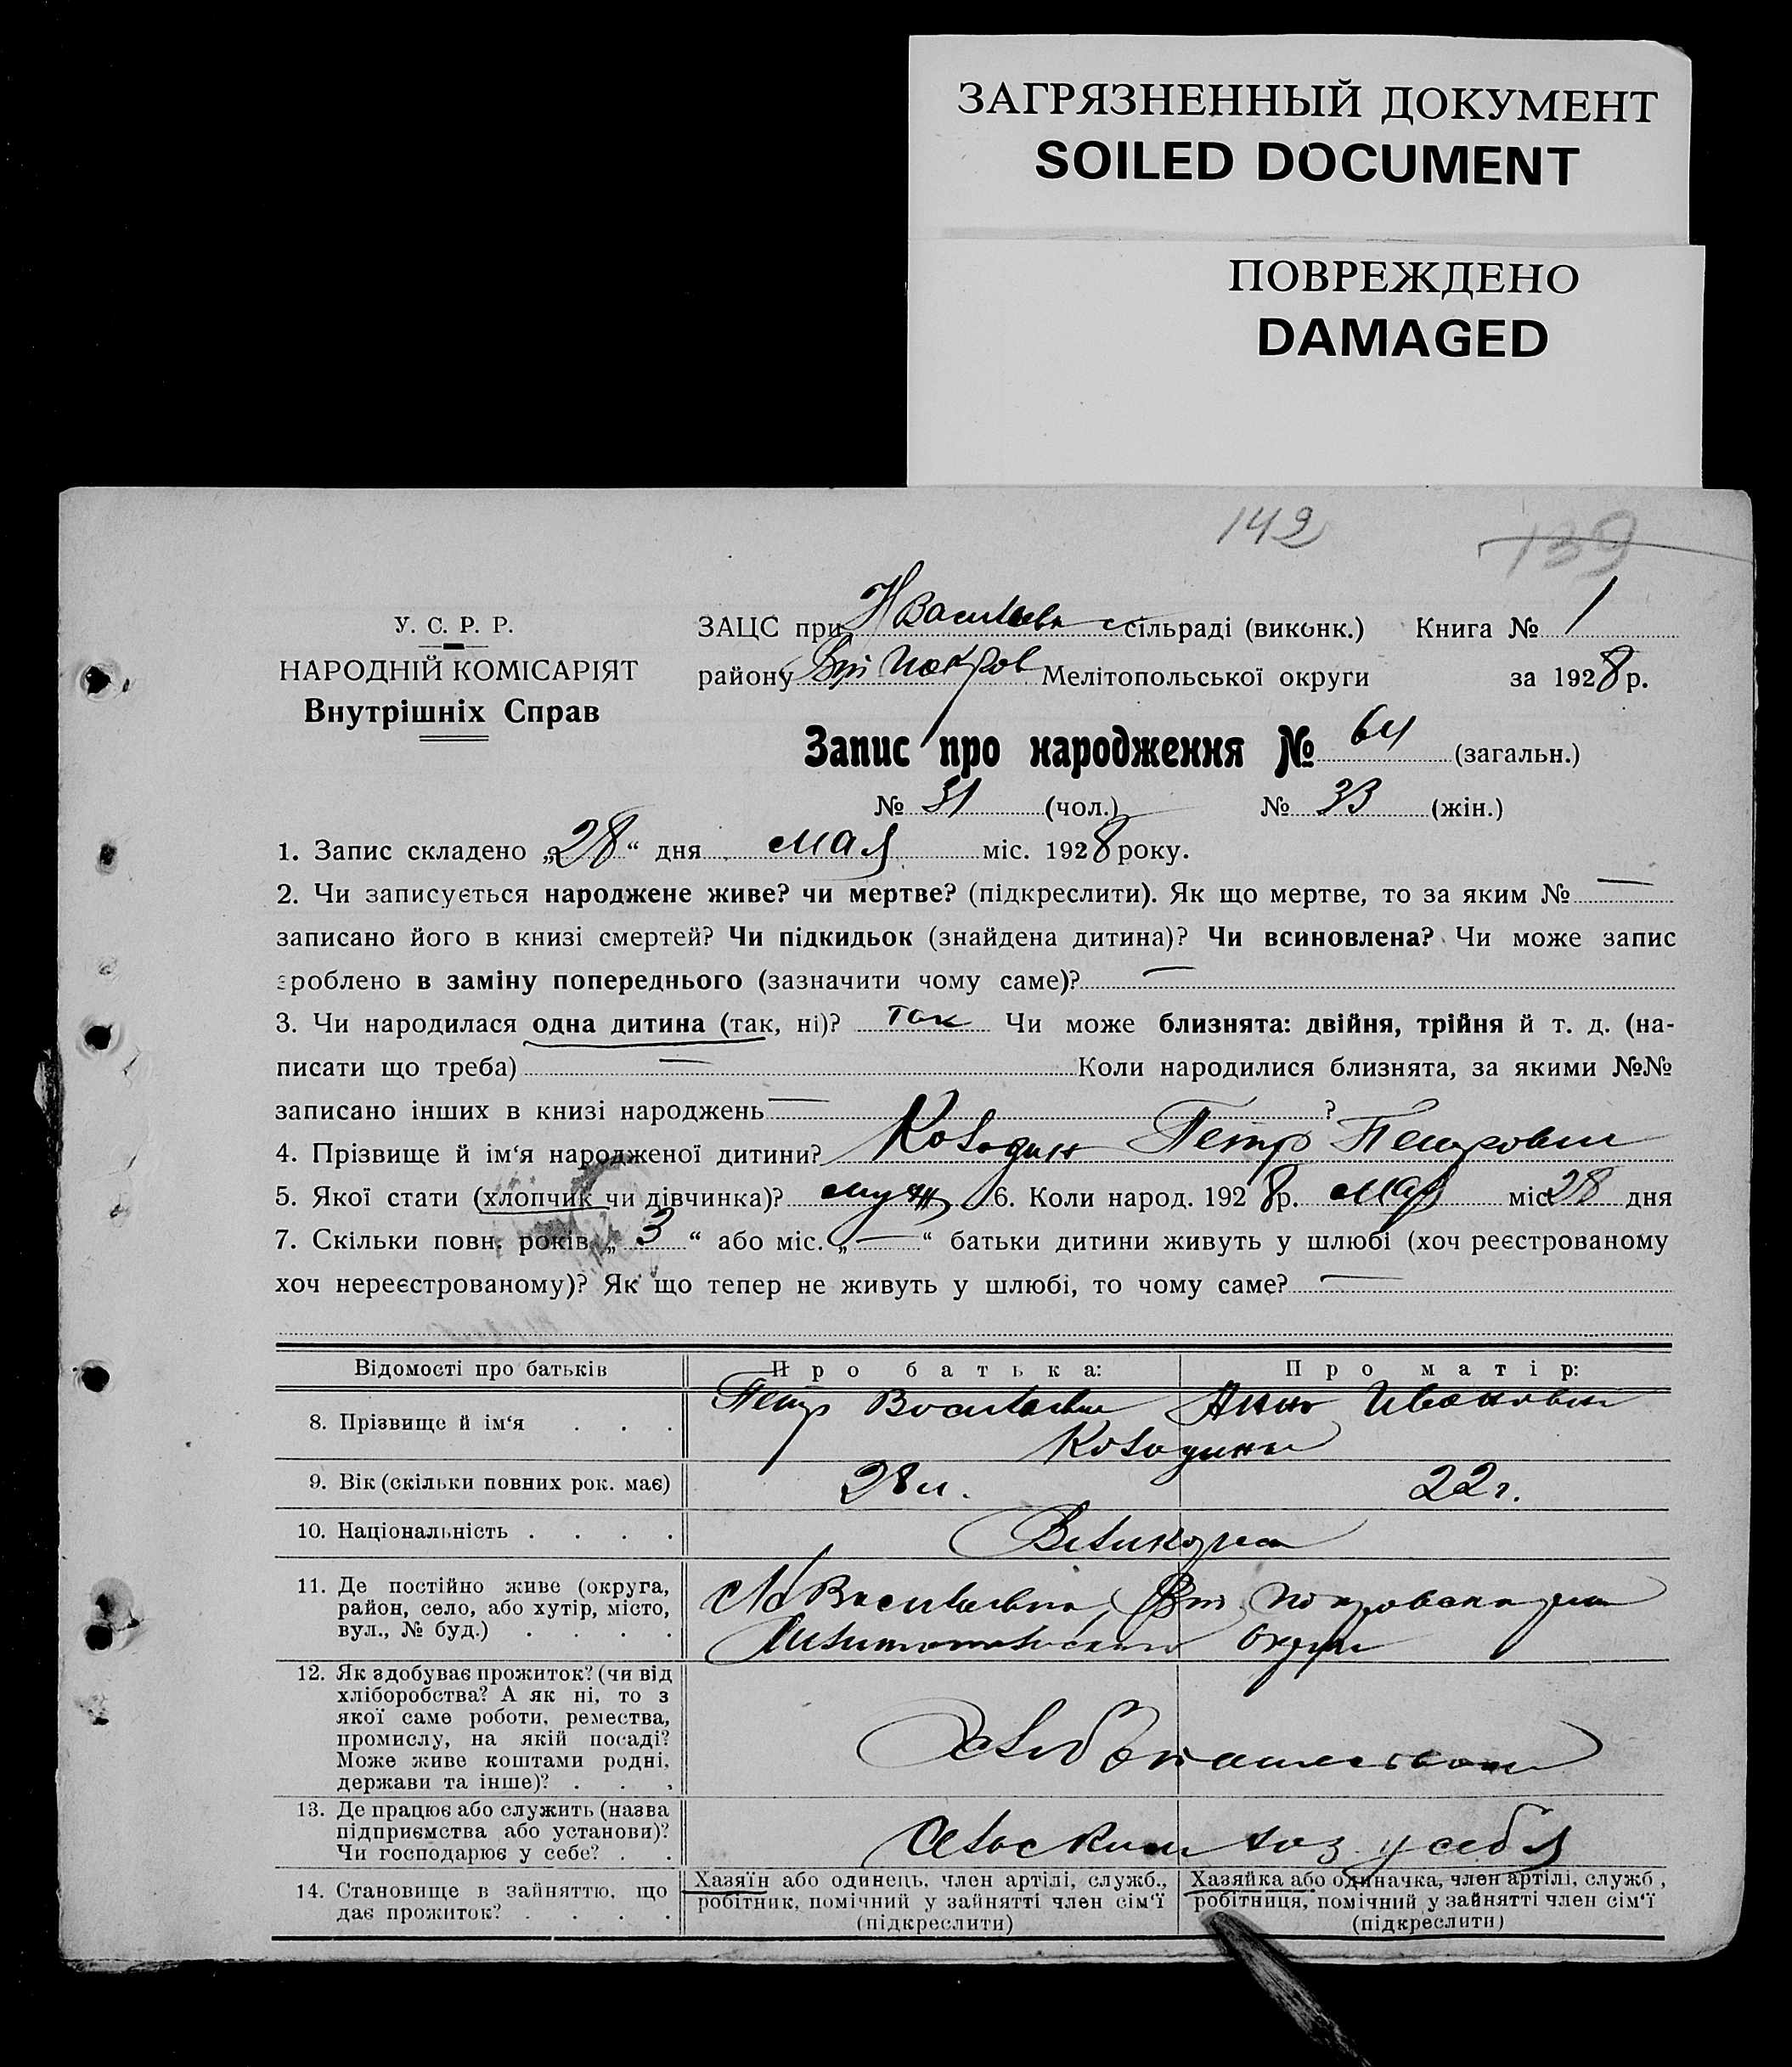 ЗАГРЯЗНЕННЫЙ ДОКУМЕНТ
SOILED DOCUMENT
ПОВРЕЖДЕНО
DAMAGED
142
139
У. С. Р. Р.
НАРОДНІЙ КОМІСАРІЯТ
Внутрішніх Справ
ЗАЦС при сільраді (виконк.) Книга № 1
району Мелітопольської округи за 1928 р.
Запис про народження № 64 (загальн.)
№ 31 (чол.) № 33 (жін.)
1. Запис складено „28“ дня мая міс. 1928 року.
2. Чи записується народжене живе? чи мертве? (підкреслити). Як що мертве, то за яким № —
записано його в книзі смертей? Чи підкидьок (знайдена дитина)? Чи всиновлена? Чи може запис
зроблено в заміну попереднього (зазначити чому саме)? —
3. Чи народилася одна дитина (так, ні)? так Чи може близнята: двійня, трійня й т. д. (на-
писати що треба) — Коли народилися близнята, за якими №№
записано інших в книзі народжень — ?
4. Прізвище й ім‘я народженої дитини? Колодин Петр Петрович
5. Якої стати (хлопчик чи дівчинка)? муж 6. Коли народ. 1928 р. мая міс 28 дня
7. Скільки повн. років „3“ або міс. „—“ батьки дитини живуть у шлюбі (хоч реєстрованому
хоч нереєстрованому)? Як що тепер не живуть у шлюбі, то чому саме? —
Відомості про батьків Про батька: Про матір:
8. Прізвище й ім‘я . . . Петр Васильевич Анна Ивановна
Колодины
9. Вік (скільки повних рок. має) 28 л. 22 г.
10. Національність . . . .
11. Де постійно живе (округа,
район, село, або хутір, місто,
вул., № буд.) . . . .
округи
12. Як здобуває прожиток? (чи від
хліборобства? А як ні, то з
якої саме роботи, ремества,
промислу, на якій посаді?
Може живе коштами родні,
держави та інше)? . . .
Хлебопашеством
13. Де працює або служить (назва
підприємства або установи)?
Чи господарює у себе? . .
у себя
14. Становище в зайняттю, що
дає прожиток? . . . .
Хазяїн або одинець, член артілі, служб.,
робітник, помічний у зайнятті член сім‘ї
(підкреслити)
Хазяйка або одиначка, член артілі, служб.,
робітниця, помічний у зайнятті член сім‘ї
(підкреслити)